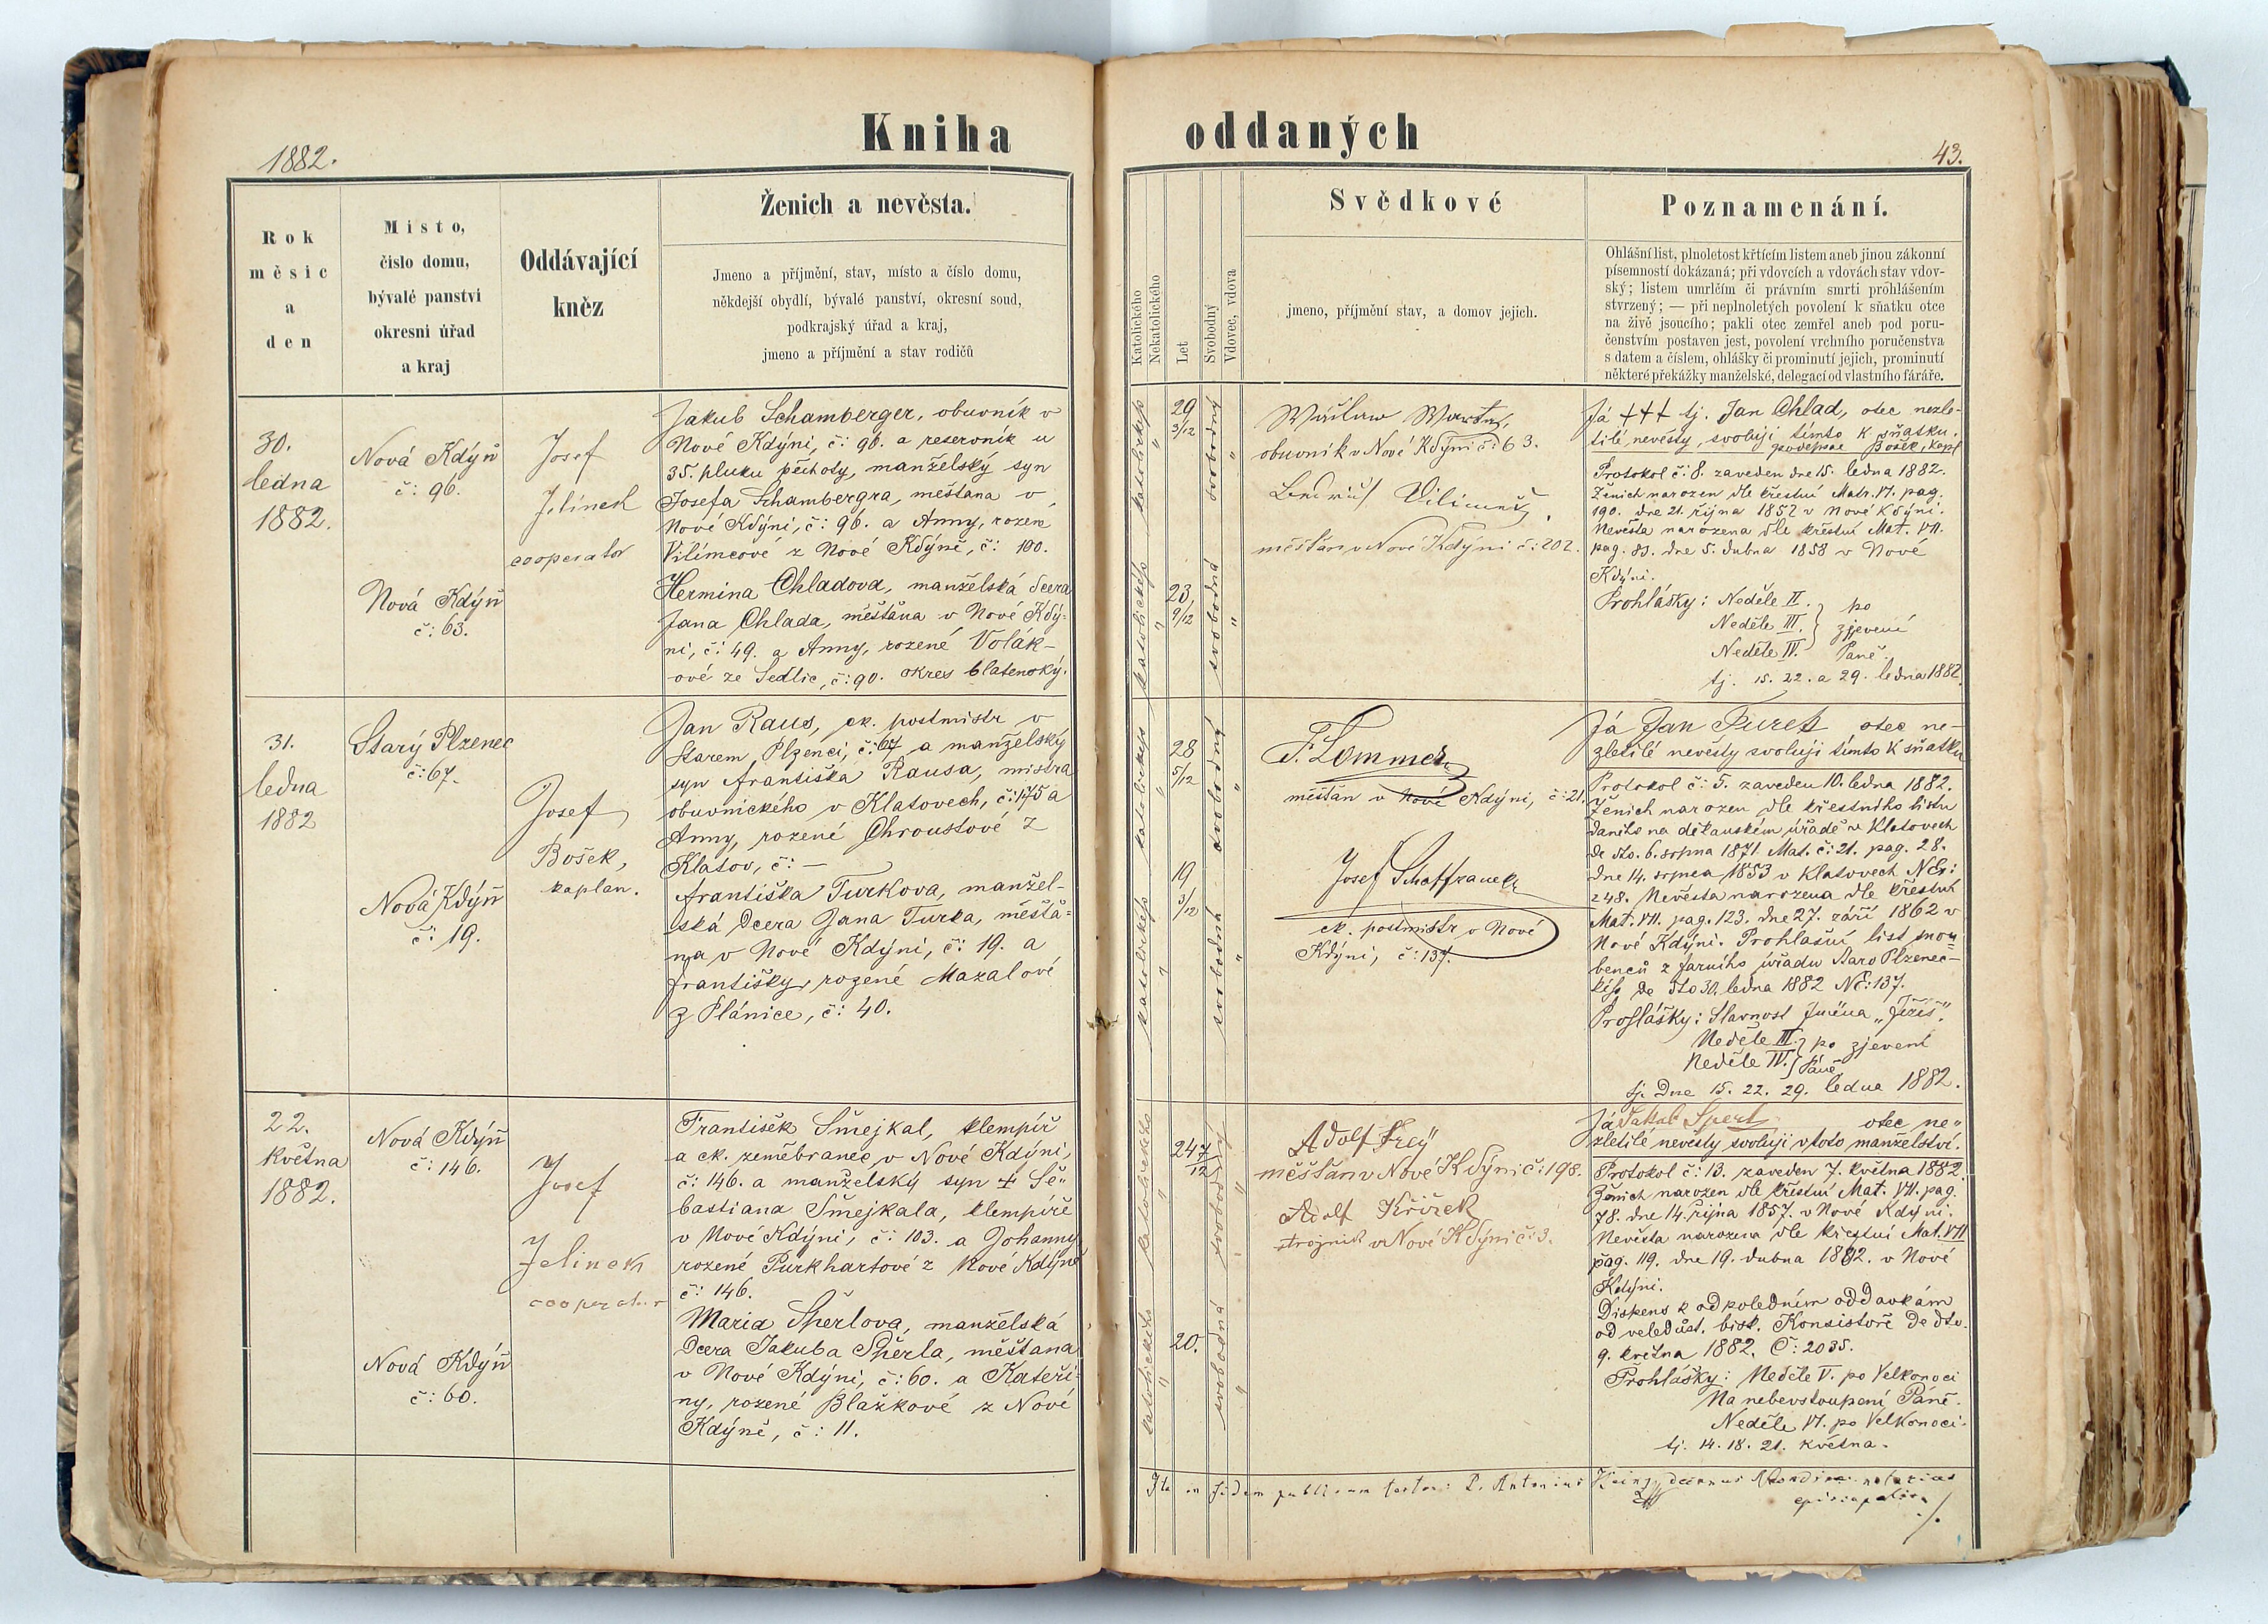 1882.
Kniha oddaných
43.
Rok
měsíc
a
den
Místo,
číslo domu,
bývalé panství
okresní úřad
a kraj
Oddávající
kněz
Ženich a nevěsta.
Jmeno a příjmění, stav, místo a číslo domu,
někdejší obydlí, bývalé panství, okresní soud,
podkrajský úřad a kraj,
jmeno a příjmění a stav rodičů
Katolického
Nekatolického
Let
Svobodný
Vdovec, vdova
Svědkové
jmeno, příjmění stav, a domov jejich.
Poznamenání.
Ohlášní list, plnoletost křtícím listem aneb jinou zákonní
písemností dokázaná; při vdovcích a vdovách stav vdov-
ský; listem umrlčím či právním smrti prohlášením
stvrzený; — při neplnoletých povolení k sňatku otce
na živě jsoucího; pakli otec zemřel aneb pod poru-
čenstvím postaven jest, povolení vrchního poručenstva
s datem a číslem, ohlášky či prominutí jejich, prominutí
některé překážky manželské, delegací od vlastního fáráře.
30.
ledna
1882.
Nová Kdýň
č: 96.
Nová Kdýň
č: 63.
Josef
Jelínek
cooperator
Jakub Schamberger, obuvník v
Nové Kdýni, č: 96. a reservník u
35. pluku pěchoty, manželský syn
Josefa Schambergra, měšťana v
Nové Kdýni, č: 96. a Anny, rozené
Vilímcové z Nové Kdýně, č: 100.
Hermina Chladova, manželská dcera
Jana Chlada, měšťana v Nové Kdý-
ni, č: 49. a Anny, rozené Volák-
ové ze Sedlic, č: 90. okres blatenský.
katolického
"
29
3/12
svobodný
"
katolického
"
23
9/12
svobodná
"
obuvník v Nové Kdýni č: 63.
měšťan v Nové Kdýni č: 202.
Já +++ tj. Jan Chlad, otec nezle-
tilé nevěsty, svoluji tímto k sňatku.
Bošek, kapl
Protokol č: 8. zaveden dne 15. ledna 1882.
Ženich narozen dle křestní Matr. VI. pag.
190. dne 21. října 1852 v Nové Kdýni.
Nevěsta narozena dle křestní Mat. VII.
pag. 83. dne 5. dubna 1858 v Nové
Kdýni.
Prohlášky: Neděle II. } po
Neděle III. } zjevení
Neděle IV. } Páně.
tj. 15. 22. a 29. ledna 1882.
31.
ledna
1882
Starý Plzenec
č: 67.
Nová Kdýň
č: 19.
Josef
Bošek,
kaplan.
Jan Raus, ck. postmistr v
Starem Plzenci, č: 67 a manželský
syn Františka Rausa, mistra
obuvnického v Klatovech, č: 175 a
Anny, rozené Chroustové z
Klatov, č: —
Františka Turkova, manžel-
ská dcera Jana Turka, měšťa-
na v Nové Kdýni, č: 19. a
Františky, rozené Mazalové
z Plánice, č: 40.
katolického
"
28
5/12
svobodný
"
katolického
"
19
3/12
svobodná
"
F. Lommer
měšťan v Nové Kdýni, č: 21.
Josef Schaffranek
ck. postmistr v Nové
Kdýni, č: 137.
Já Jan Turek otec ne-
zletilé nevěsty svoluji tímto k sňatku
Protokol č: 5. zaveden 10. ledna 1882.
Ženich narozen dle křestního listu
daného na děkanském úřadě v Klatovech
de dto. 6. srpna 1871. Mat. č: 21. pag. 28.
dne 14. srpna 1853 v Klatovech
248. Nevěsta narozena dle křestní
Mat. VII. pag. 123. dne 27. září 1862 v
Nové Kdýni. Prohlašní list snou-
benců z farního úřadu Staro Plzenec-
kého de dto 30. ledna 1882 Nč: 137.
Prohlášky: Slavnost Jména „Ježíš".
Neděle III. } po zjevení
Neděle IV. } Páně
tj. Dne 15. 22. 29. ledna 1882.
22.
května
1882.
Nová Kdýň
č: 146.
Nová Kdýň
č: 60.
Josef
Jelinek
cooperator
František Šmejkal, klempíř
a ck. zeměbranec v Nové Kdýni,
č: 146. a manželský syn + Še-
bastiana Šmejkala, klempíře
v Nové Kdýni, č: 103. a Johanny
rozené Purkhartové z Nové Kdýně
č: 146.
Maria Šperlova, manželská
dcera Jakuba Šperla, měšťana
v Nové Kdýni, č: 60. a Kateři-
ny, rozené Blažkové z Nové
Kdýně, č: 11.
katolického
"
24 7/12
svobodný
"
katolického
"
20.
svobodná
"
Adolf Frey
měšťan v Nové Kdýni č: 198.
Adolf Křižek
strojník v Nové Kdýni č: 3.
Já Jakub Sperl otec ne-
zletilé nevěsty svoluji v toto manželství.
Protokol č: 13. zaveden 7. května 1882
Ženich narozen dle křestní Mat. VII. pag.
78. dne 14. října 1857. v Nové Kdýni.
Nevěsta narozena dle křestní Mat. VII
pag. 119. dne 19. dubna 1882. v Nové
Kdýni.
Dispens k odpoledním oddavkám
od veledůst. bisk. Konsistoře de dto.
9. května 1882. Č: 2035.
Prohlášky: Neděle V. po Velkonoci
Na nebevstoupení Páně.
Neděle VI. po Velkonoci.
tj. 14. 18. 21. května.
Ita in fidem publicam testor: P. Antonius notarius